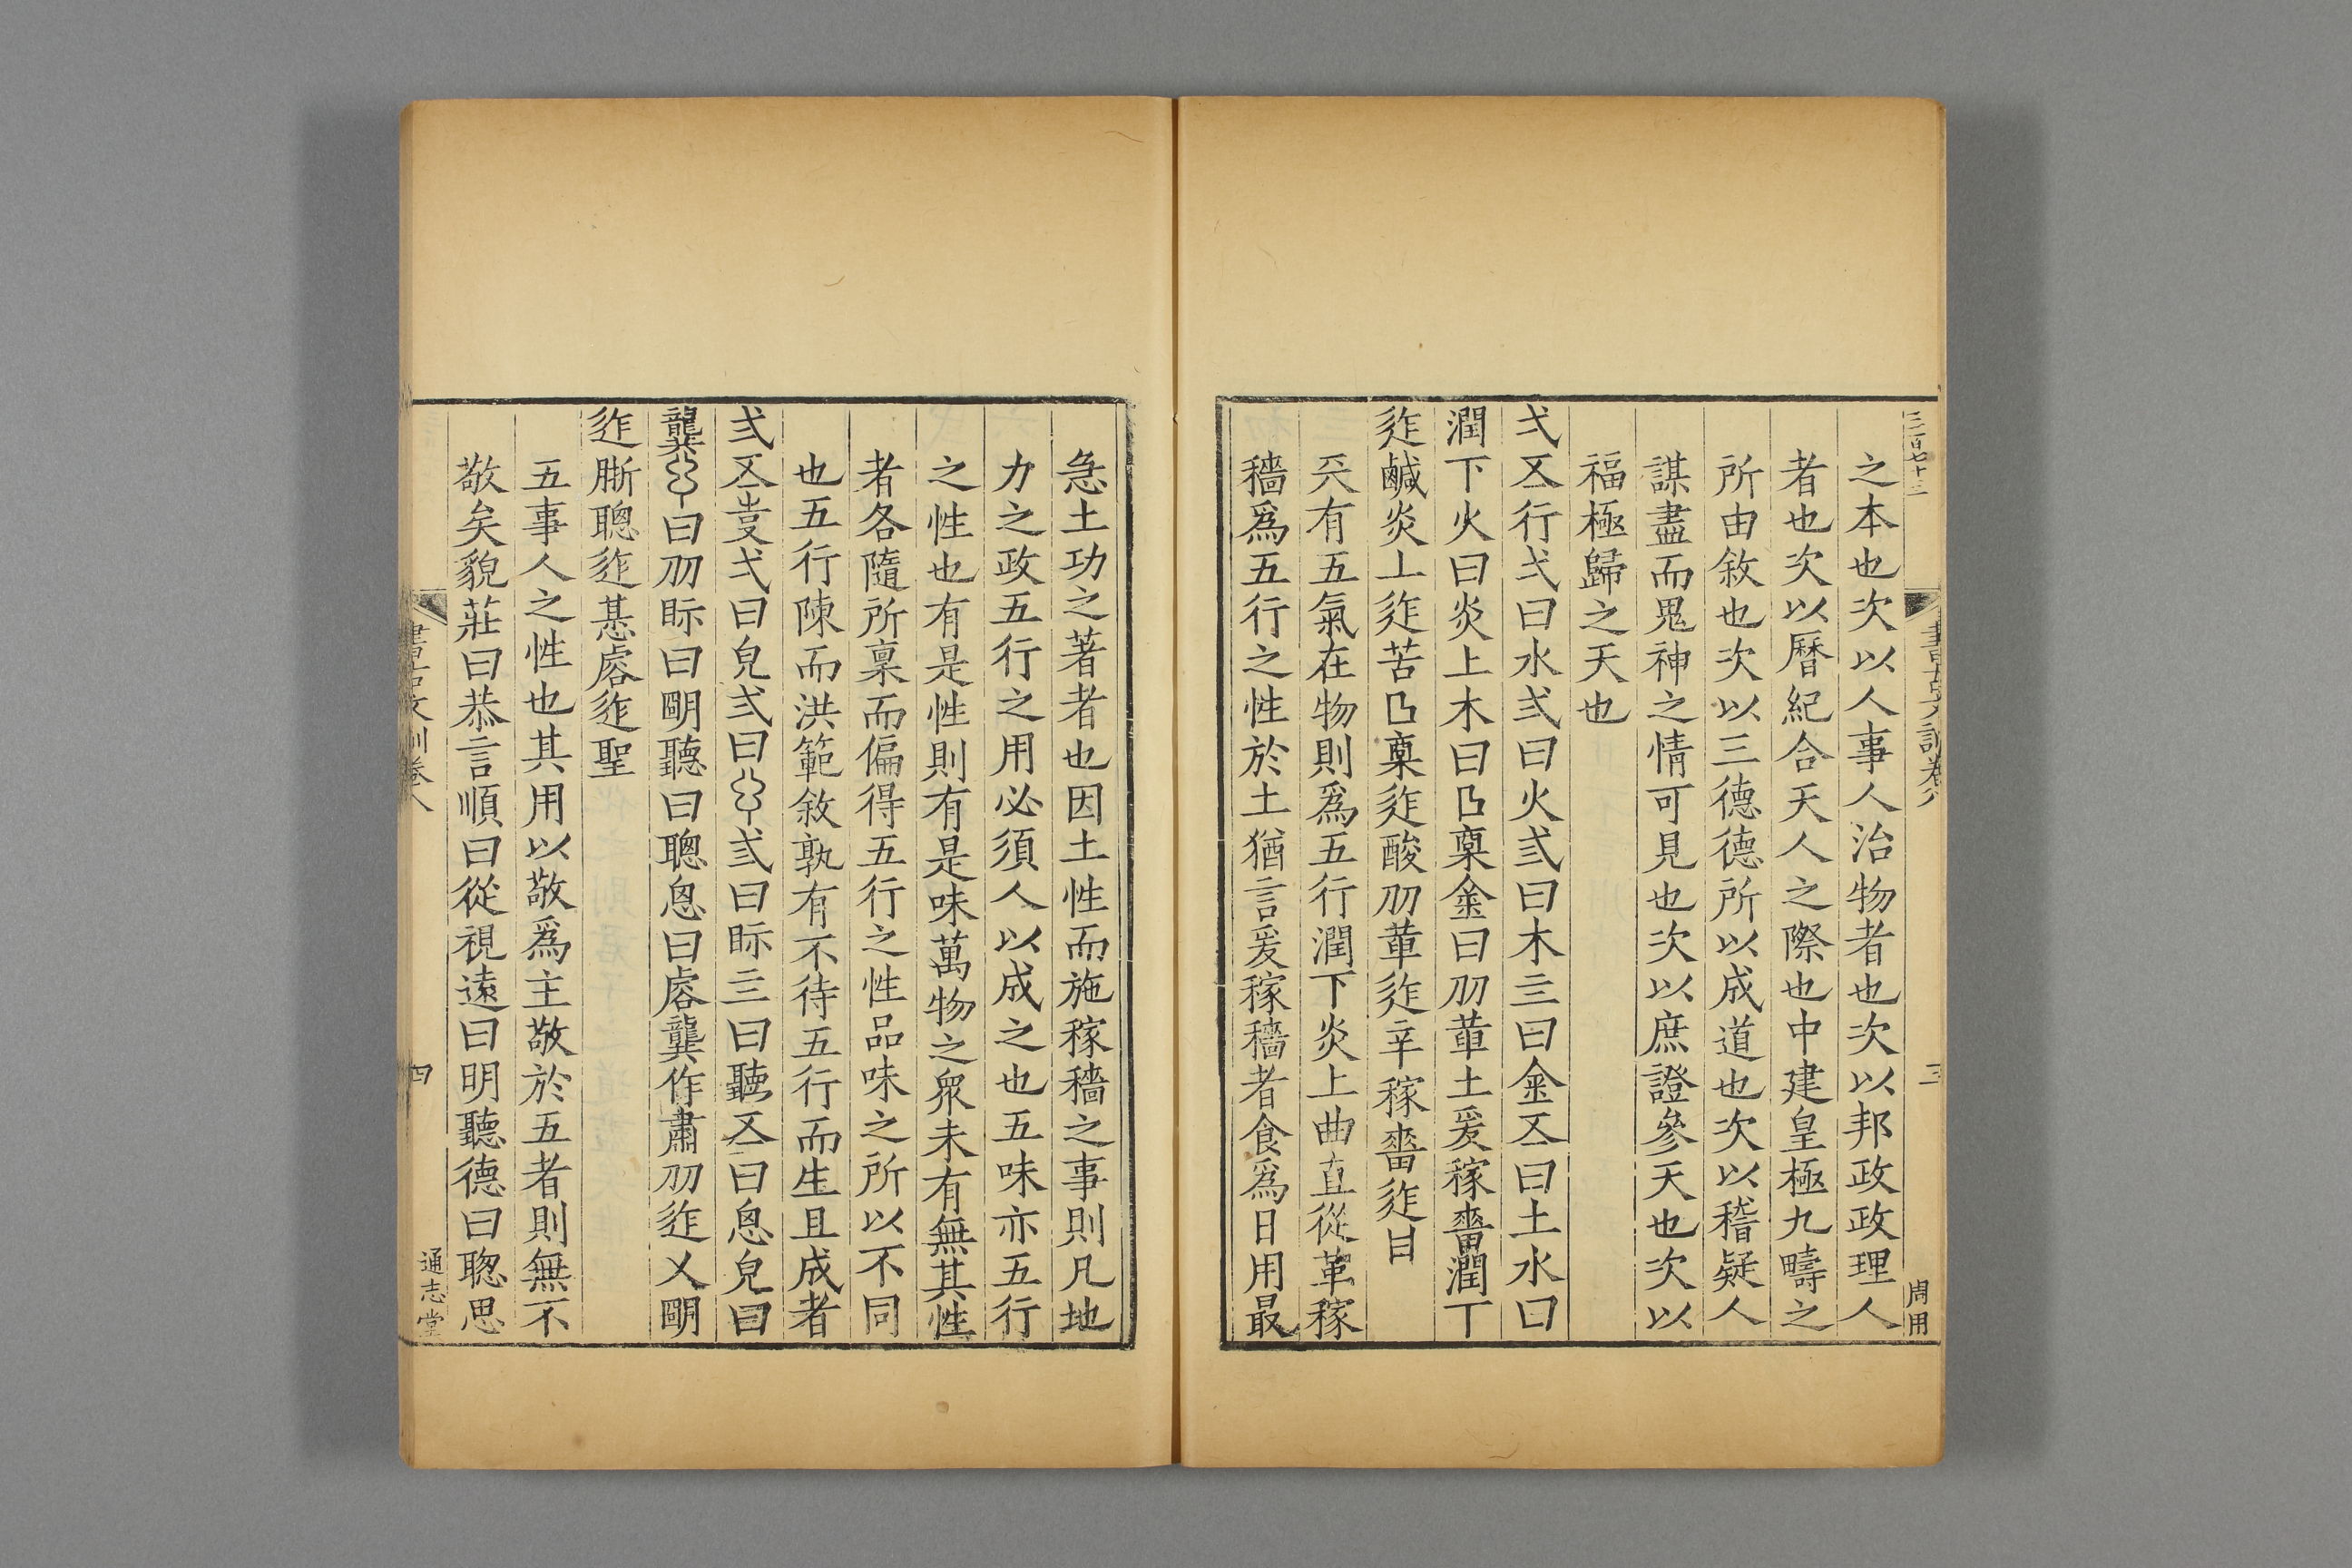 之本也次以人事人治物者也次以邦政政理人
者也次以曆紀合天人之際也中建皇極九疇之
所由敘也次以三德德所以成道也次以稽疑人
謀盡而鬼神之情可見也次以庶證參天也次以
福極歸之天也
弌𠄡行弌曰水弍曰火弎曰木亖曰金𠄡曰土水曰
潤下火曰炎上木曰𠙴稟金曰刅䓬土爰稼嗇潤丅
迮鹹炎丄迮苦𠙴稟迮酸刅䓬迮辛稼嗇迮甘
天有五氣在物則爲五行潤下炎上曲直從革稼
穡爲五行之性於土猶言爰稼穡者食爲日用最
急土功之著者也因土性而施稼穡之事則凡地
力之政五行之用必須人以成之也五味亦五行
之性也有是性則有是味萬物之衆未有無其性
者各隨所稟而偏得五行之性品味之所以不同
也五行陳而洪範敘孰有不待五行而生且成者
弍𠄡㕝弌曰皃弍曰弎曰眎亖曰聽𠄡曰恖皃曰
龔曰刅眎曰朙聽曰聰恖曰睿龔作肅刅迮乂朙
迮晣聰迮惎睿迮聖
五事人之性也其用以敬爲主敬於五者則無不
敬矣貌莊曰恭言順曰從視遠曰明聽德曰聦思
書古文訓卷八
三
周用
書古文訓卷八
四
通志堂